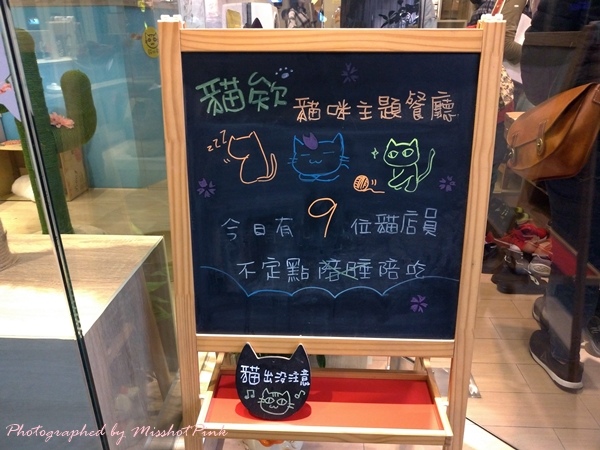 貓欸 貓咪主題餐廳
zzz
今日有 9 位貓店員
不定點陪睡陪吃
貓出沒注意
Photographed by MisshotPink